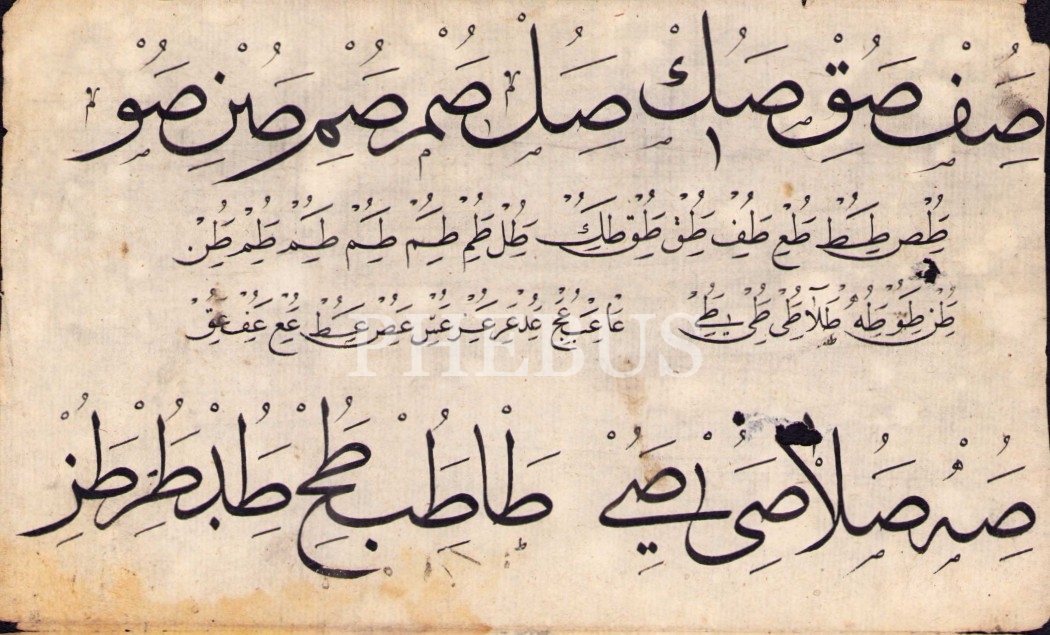 صف صق صك صل صم صم صن صو
طص طط طع طف طق طق طك طل طم طم طم طم طم طن
طن طو طه طلا طى طى طے عا عب عج عد عر عز عس عص عط عع عف عق
PHEBUS
صه صلا صى صے طا طب طح طد طر طز